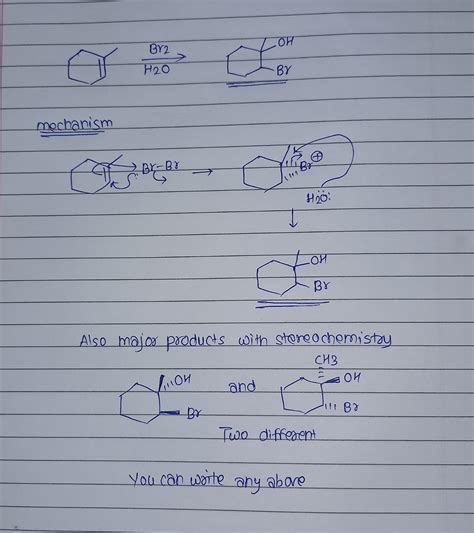 Br2
H2O
OH
Br
mechanism
Br-Br
Br ⊕
H2Ö:
OH
Br
Also major products with stereochemistry
OH
Br
and
CH3
OH
Br
Two different
You can write any above